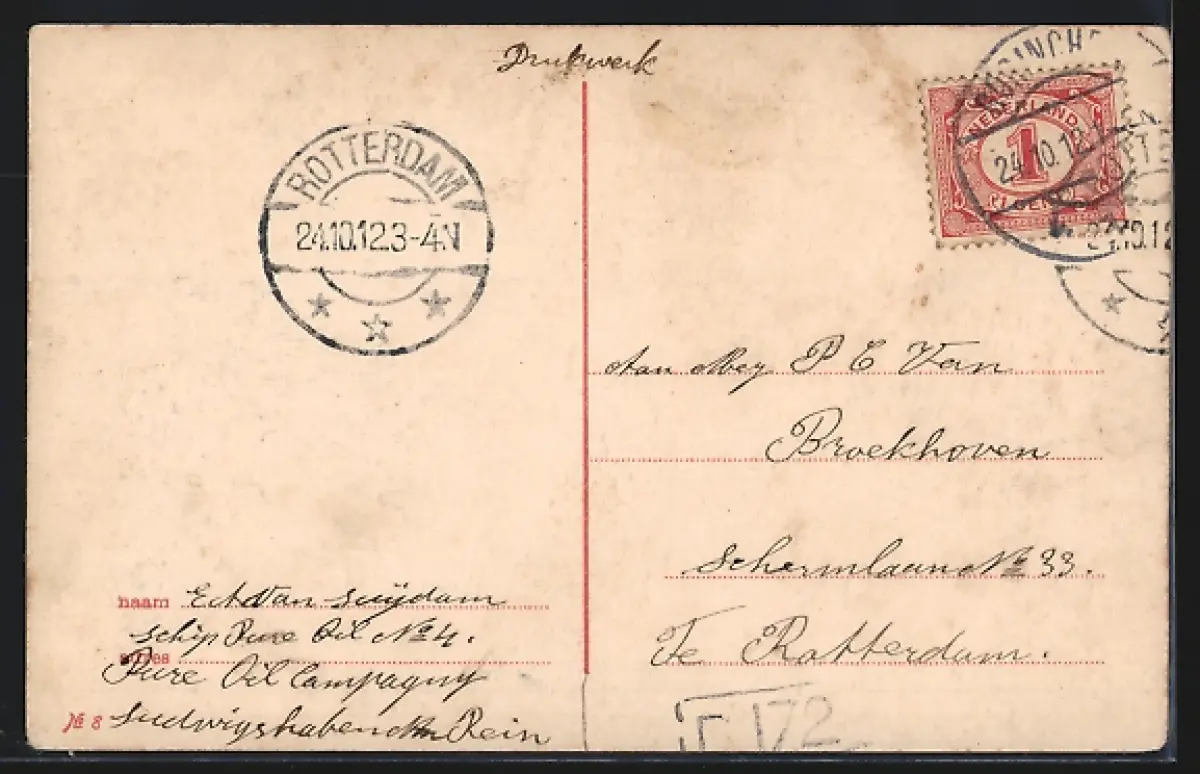 Drukwerk
ROTTERDAM
24.10.12.3-4N
NEDERLAND
1
24.10.12
24.10.12
Aan Mej P C Van
Broekhoven
Schermlaan No 33.
Te Rotterdam.
naam van Suÿdam
Schip Pure Oil No 4.
adres
Pure Oil Campagny
No 8 Ludwigshaben Rein
172